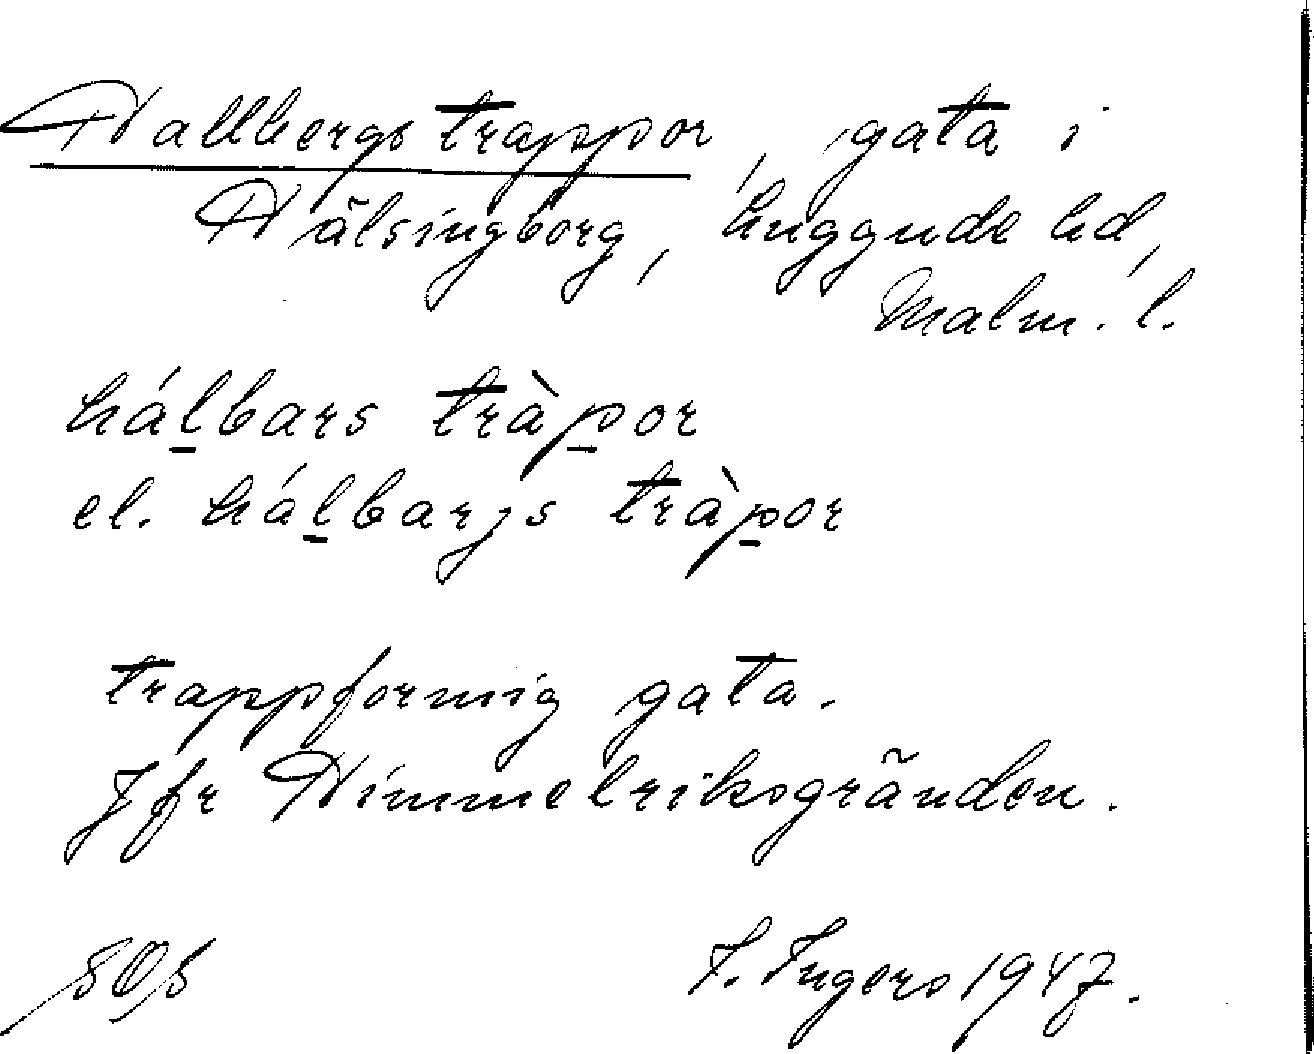 Hallbergs trappor, gata i
Hälsingborg, Luggude hd,
Malm. l.
hálbars tràpor
el. hálbarjs tràpor
trappformig gata.
Jfr Himmelriksgränden.
SOS I. Ingers 1947.